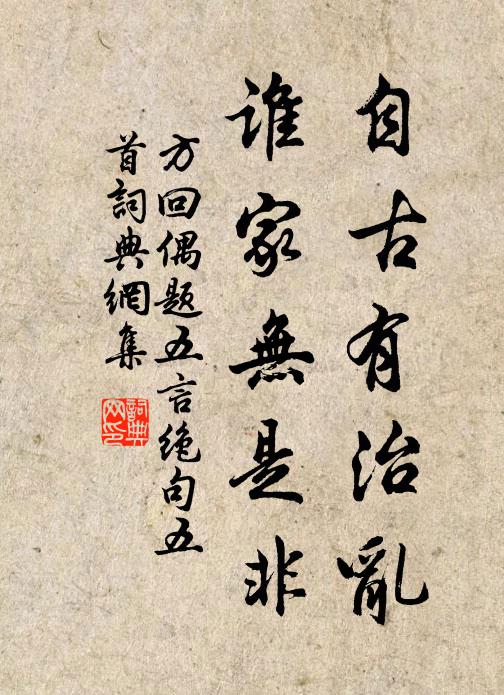 自古有治亂
誰家無是非
方回偶題五言绝句五
首詞典網集
詞典
网印